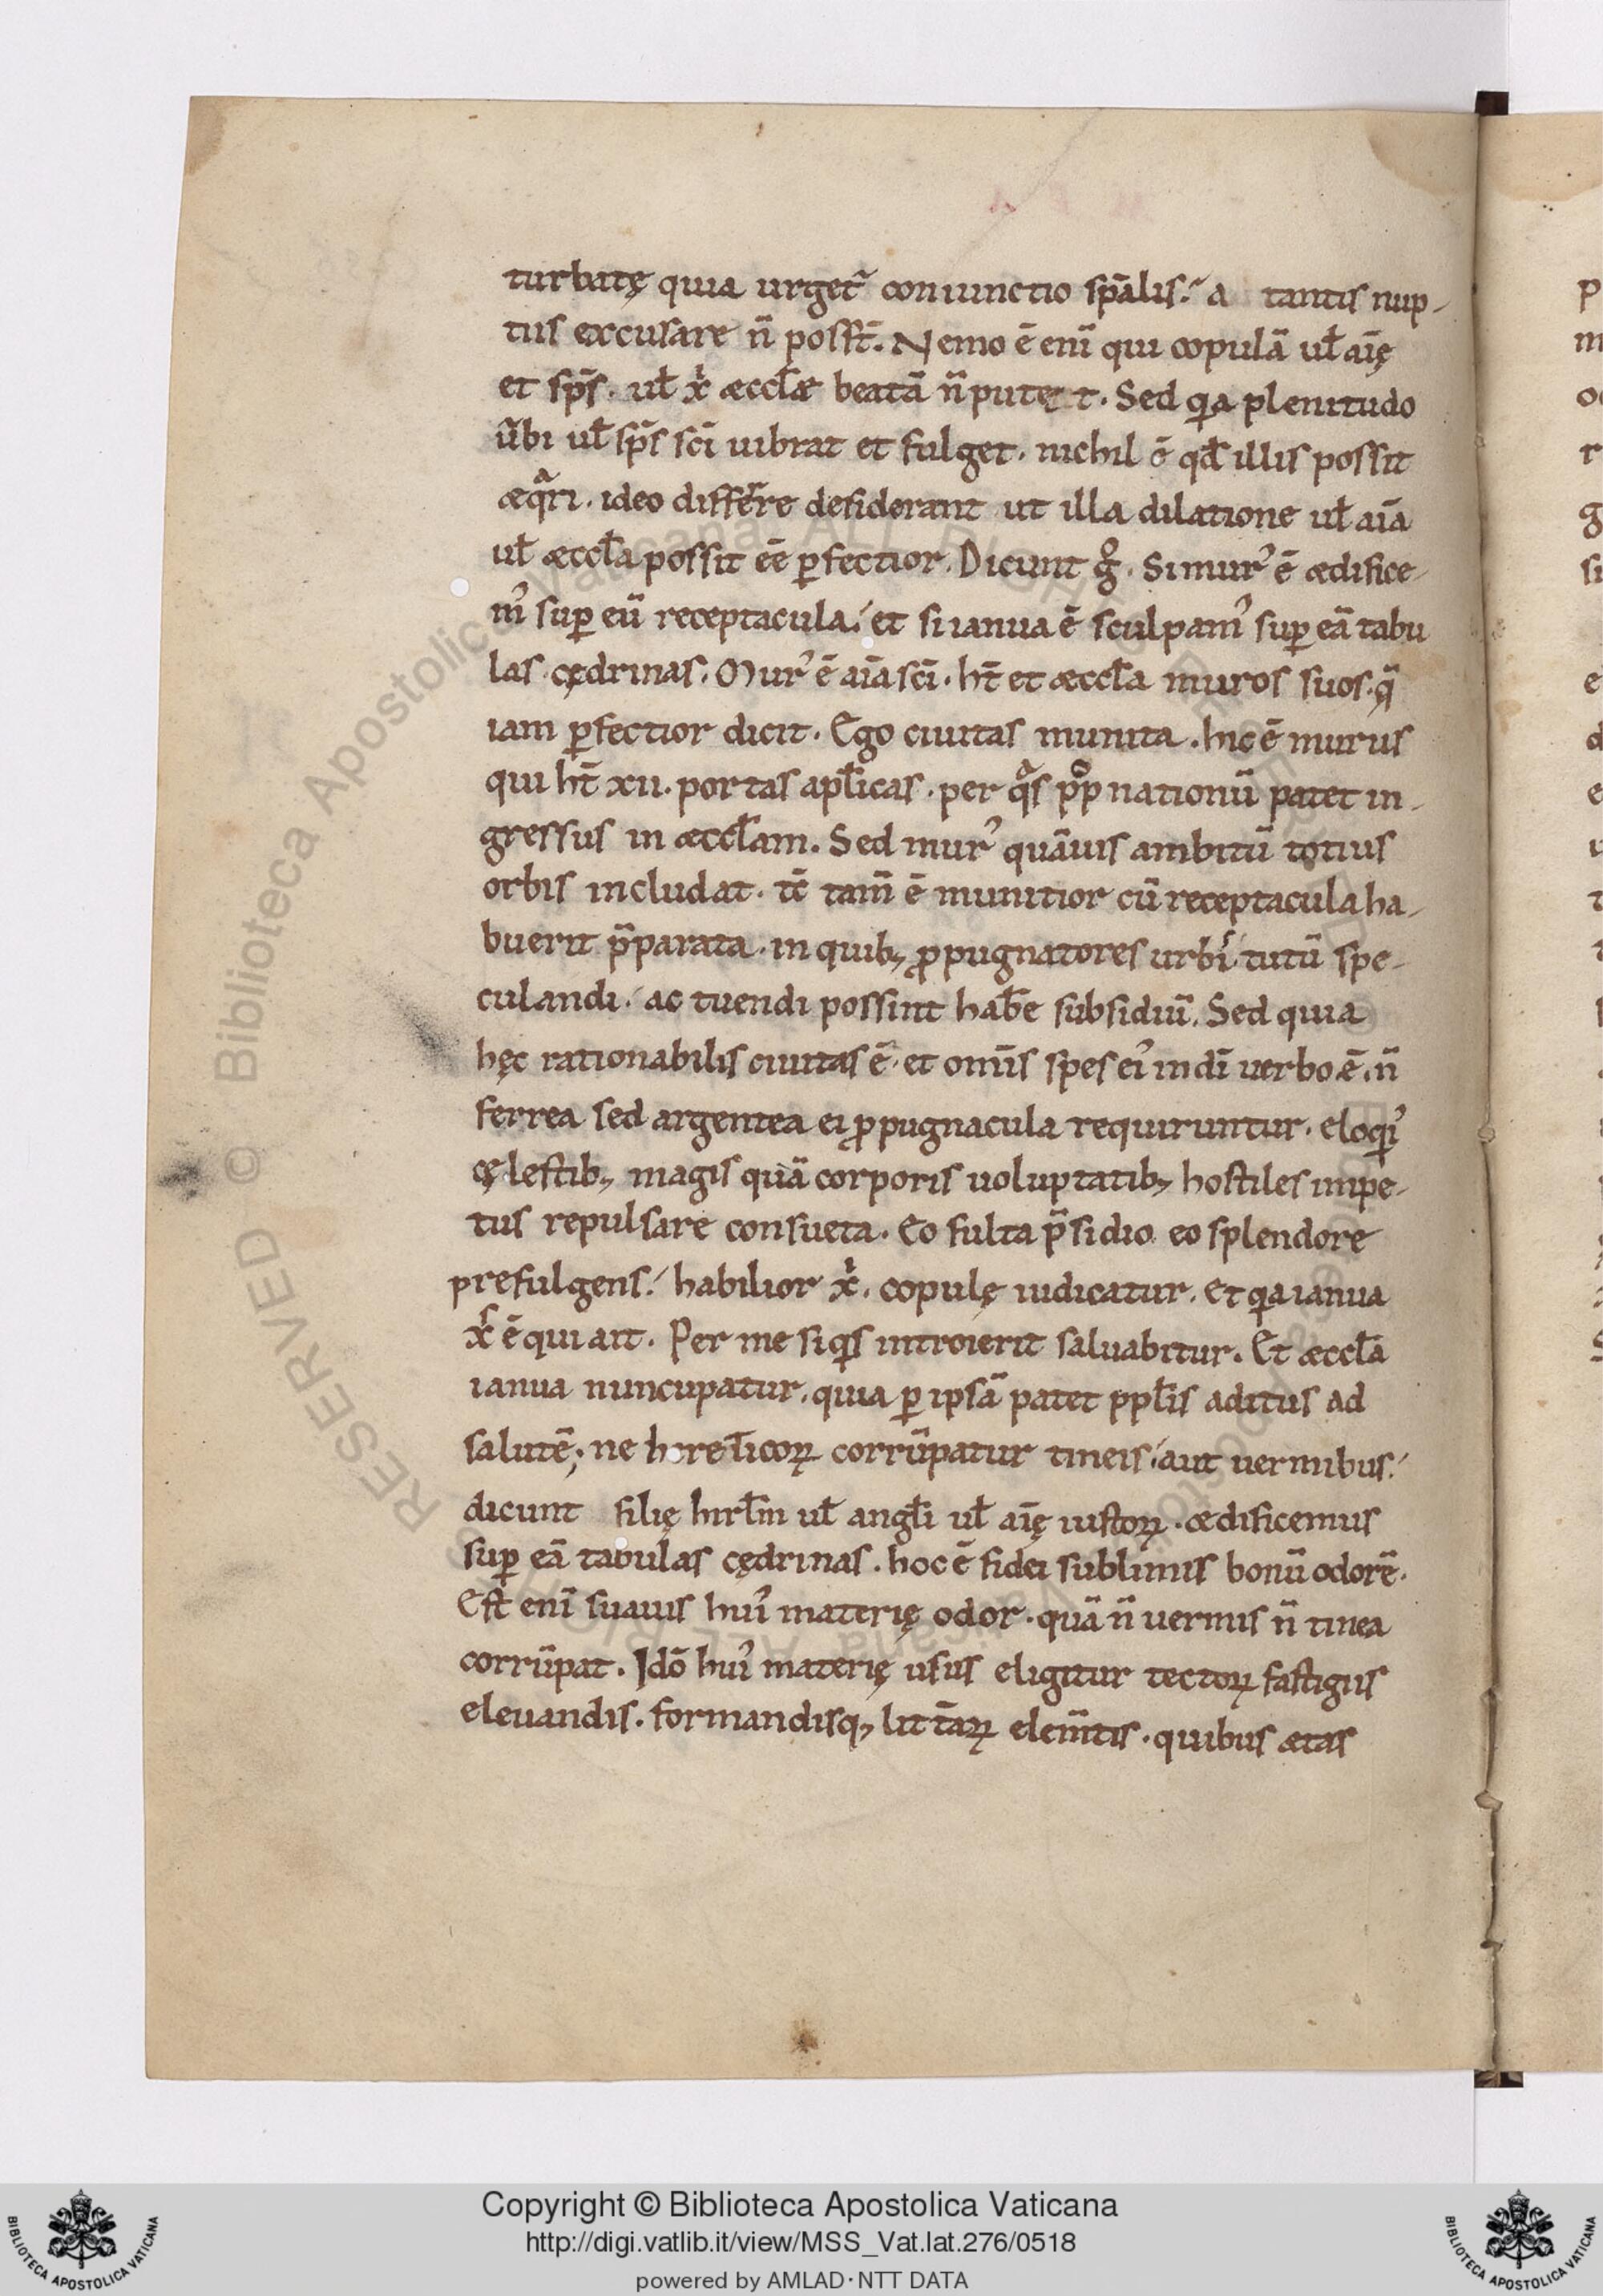 turbatę quia urget᷑ coniunctio sp̄alis. a tantis nup-
tus excusare n̄ posst̄. Nemo ē enī qui copulā ul̄ aīę
et sp̄s. ul̄ xi̊ æccl̄æ beatā n̄ putet. Sed qia plenitudo
ūbi ul̄ sp̄s sc̄i uibrat et fulget. nichil ē qd̄ illis possit
æqari. ideo differre desiderant ut illa dilatione ul̄ aīa
ul̄ æccl̄a possit eē ꝑfectior. Dicunt g̊. Si mur᾽ ē ædifice-
m᾽ suꝑ eū receptacula. et si ianua ē sculpam᾽ suꝑ eā tabu
las cędrinas. Mur᾽ ē aīa sc̄i. ht̄ et æccl̄a muros suos. q̄
iam ꝑfectior dicit. Ego ciuitas munita. hic ē murus
qui ht̄ xii. portas apl̄icas. per qas pp̊ nationū patet in-
gressus in æccl̄am. Sed mur᾽ quāuis ambitū totius
orbis includat. tc̄ tam̄ ē munitior cū receptacula ha-
buerit p̄parata. in quib; ꝓpugnatores urbis tutū spe-
culandi. ac tuendi possint hab̄e subsidiū. Sed quia
hęc rationabilis ciuitas ē. et om̄is spes ei᾽ in dī uerbo ē. n̄
ferrea sed argentea ei ꝓpugnacula requiruntur. eloqi᾽
cęlestib; magis quā corporis uoluptatib; hostiles impe-
tus repulsare consueta. Eo fulta p̄sidio eo splendore
prefulgens. habilior xi̊. copulę iudicatur. Et qia ianua
xs̄ ē qui ait. Per me siqis introierit saluabitur. Et æccl̄a
ianua nuncupatur. quia ꝑ ipsā patet ppl̄is aditus ad
salutē; ne hereticoꝝ corrūpatur tineis. aut uermibus.
dicunt filię hirl̄m ul̄ angl̄i ul̄ aīę iustoꝝ. ædificemus
suꝑ eā tabulas cędrinas. hoc ē fidei sublimis bonū odorē.
Est enī suauis hui᾽ materię odor. quā n̄ uermis n̄ tinea
corrūpat. Idō hui᾽ materię usus eligitur tectoꝝ fastigiis
eleuandis. formandisq; litt̄aꝝ elem̄tis. quibus ætas
Copyright © Biblioteca Apostolica Vaticana
http://digi.vatlib.it/view/MSS_Vat.lat.276/0518
powered by AMLAD·NTT DATA